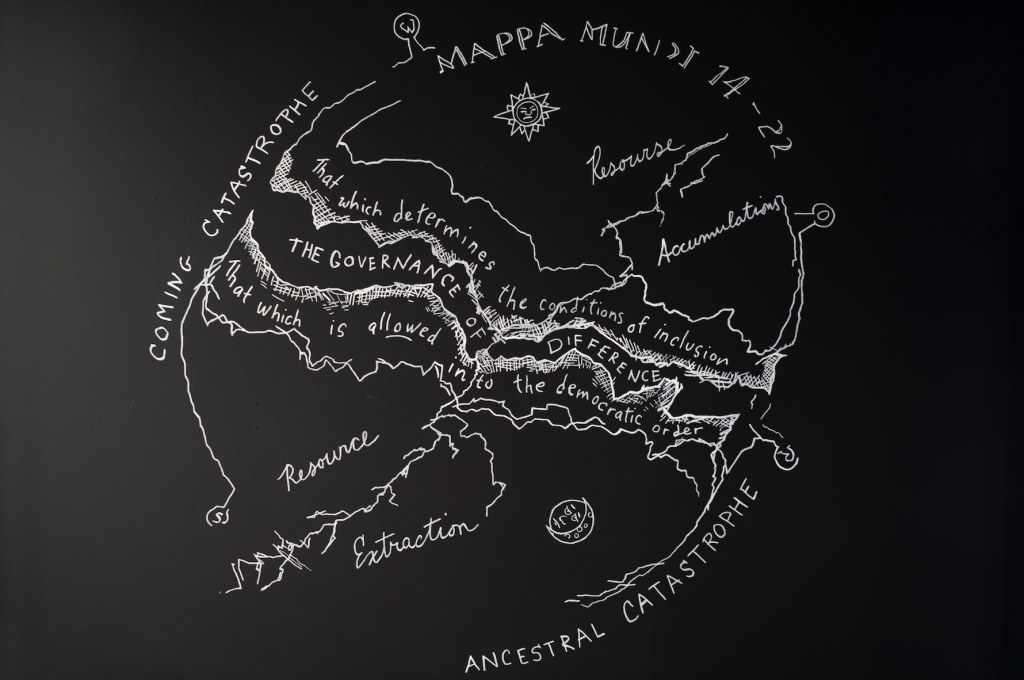 W
MAPPA MUNDI 14-22
COMING CATASTROPHE
Resourse
Accumulations
O
That which determines the conditions of inclusion
THE GOVERNANCE OF DIFFERENCE
That which is allowed into the democratic order
Resource
Extraction
S
R
ANCESTRAL CATASTROPHE